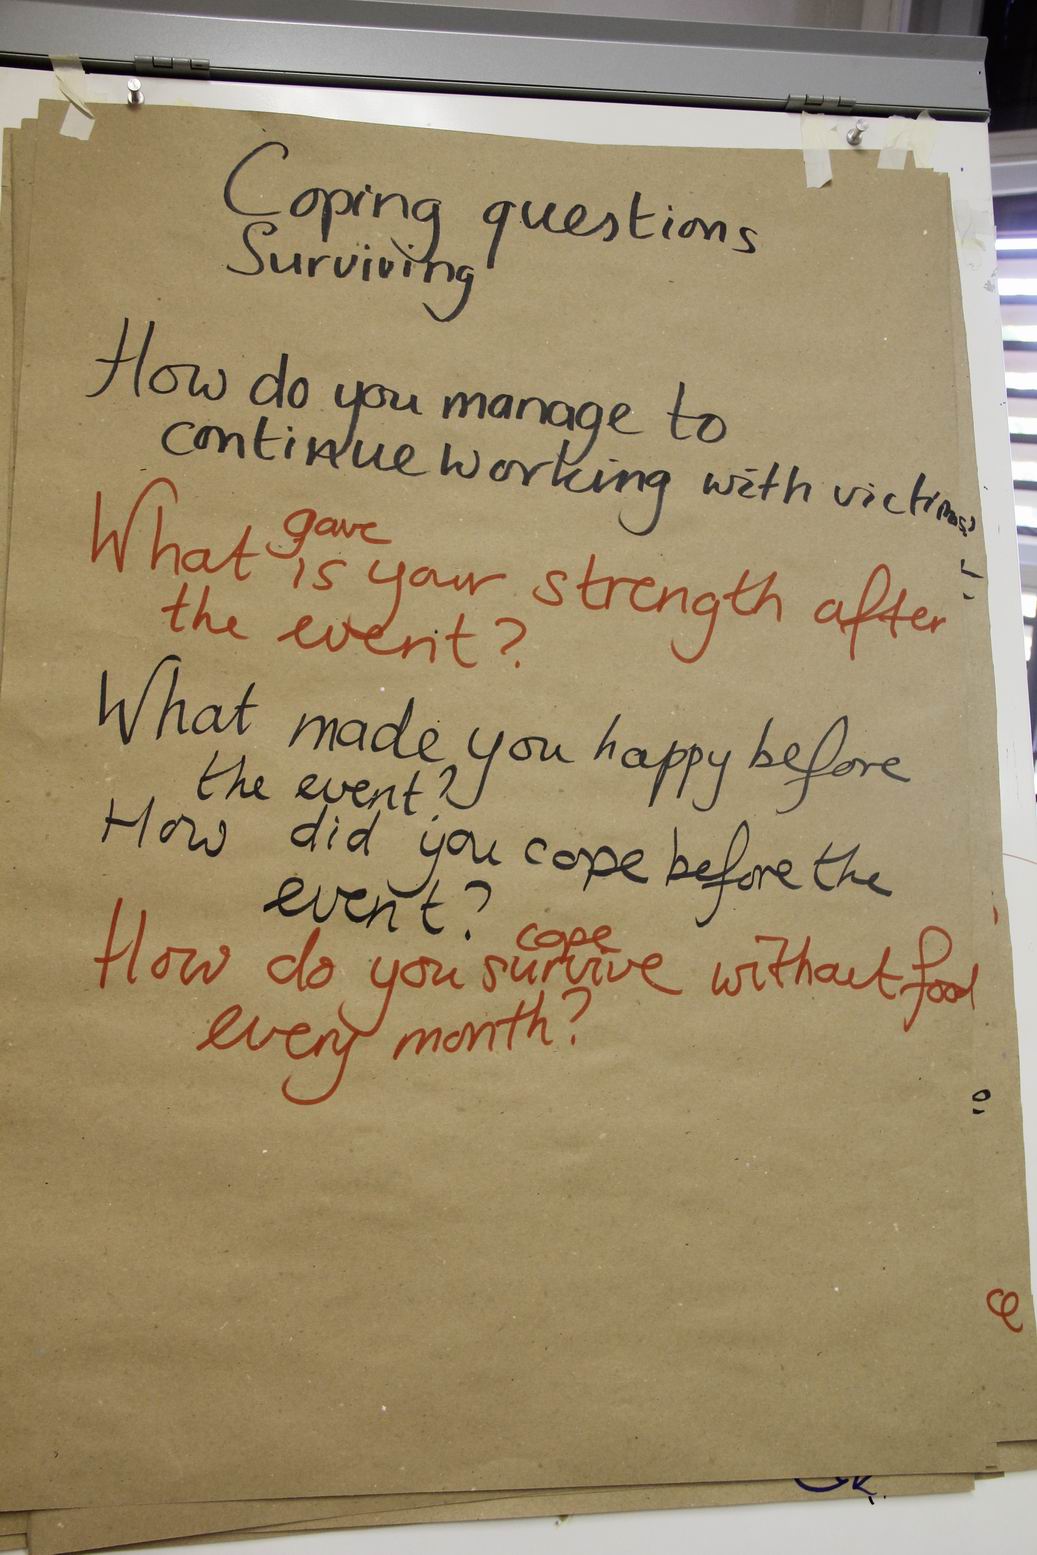 Coping questions
Surviving
How do you manage to
continue working with victims?
gave
What is your strength after
the event?
What made you happy before
the event?
How did you cope before the
event?
cope
How do you survive without food
every month?